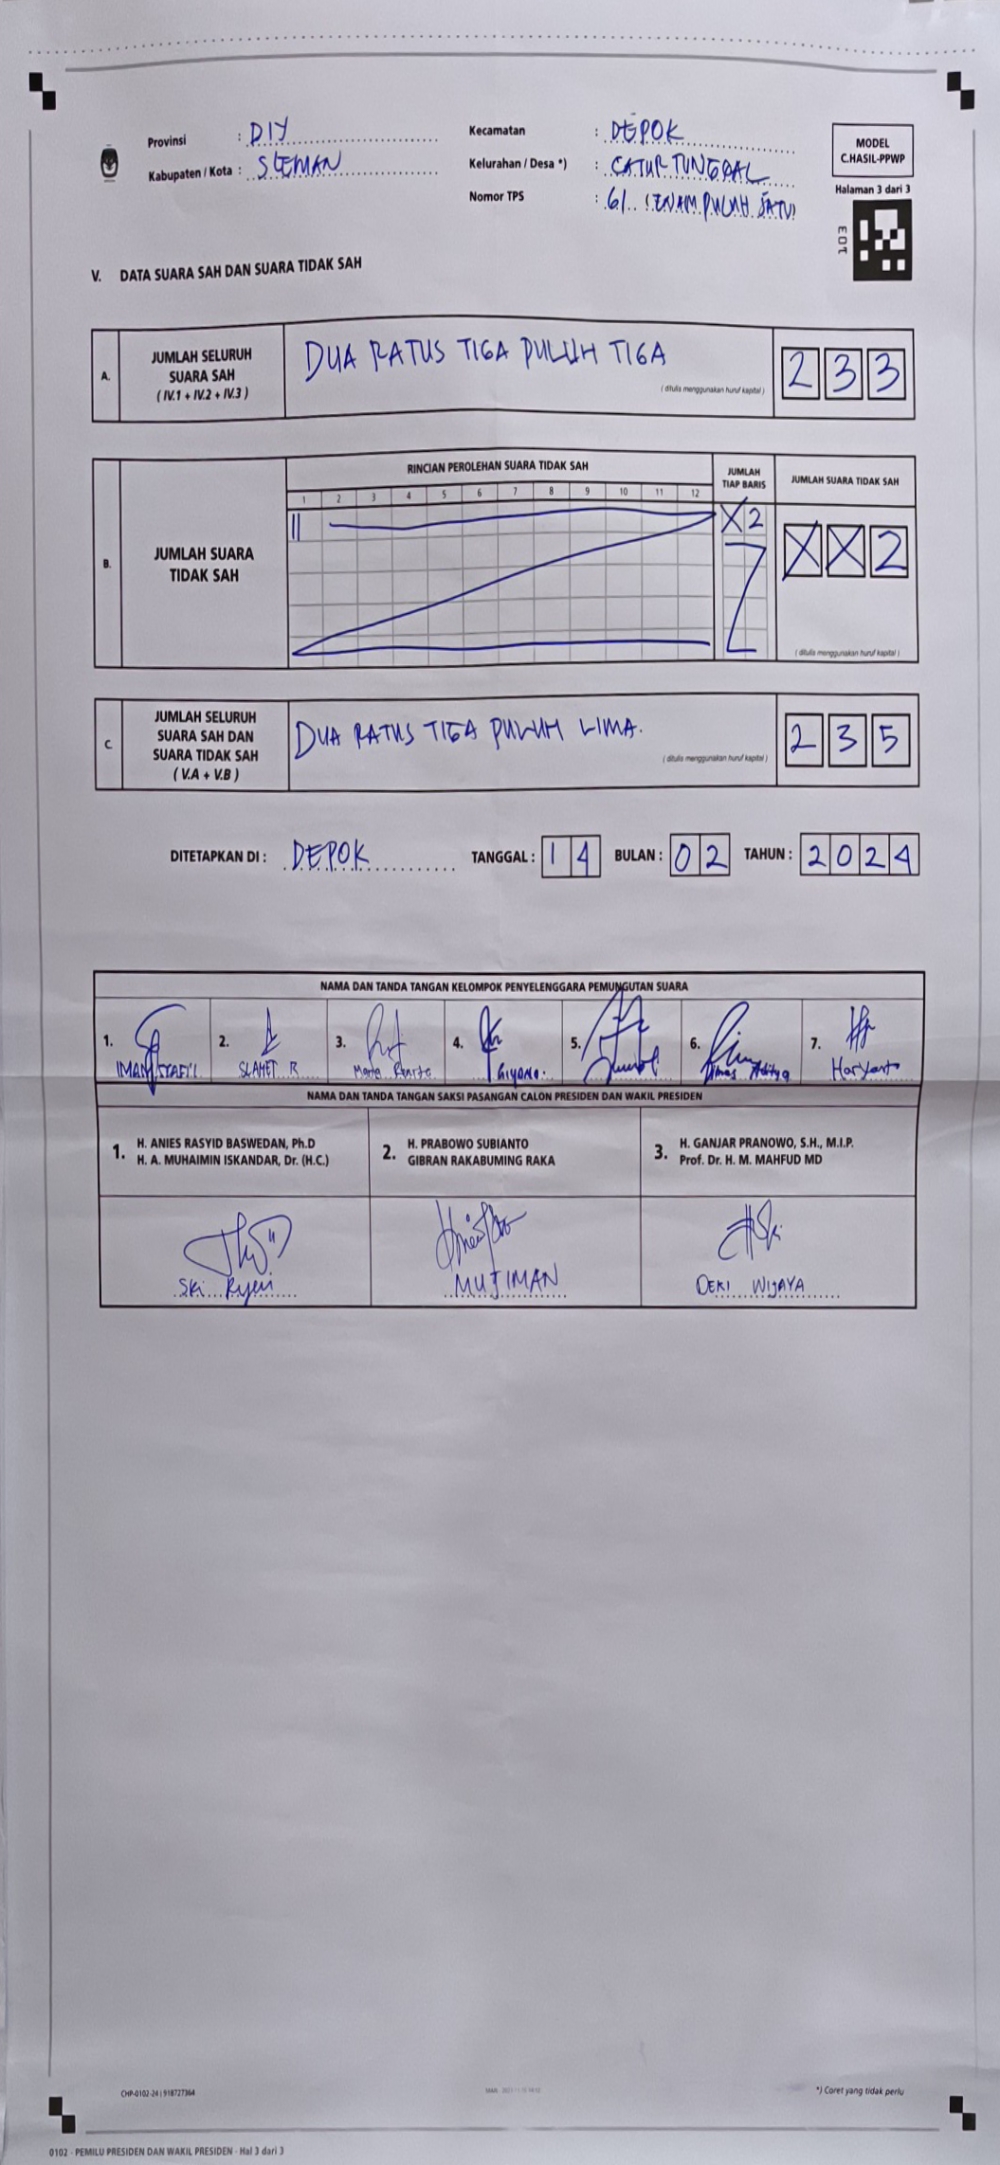 Provinsi : DIY
Kabupaten / Kota : SLEMAN
Kecamatan : DEPOK
Kelurahan / Desa *) : CATUR TUNGGAL
Nomor TPS : 61 (ENAM PULUH SATU)
MODEL
C.HASIL-PPWP
Halaman 3 dari 3
E01
V. DATA SUARA SAH DAN SUARA TIDAK SAH
A. JUMLAH SELURUH SUARA SAH (IV.1 + IV.2 + IV.3)
DUA RATUS TIGA PULUH TIGA
(ditulis menggunakan huruf kapital)
2 3 3
B. JUMLAH SUARA TIDAK SAH
RINCIAN PEROLEHAN SUARA TIDAK SAH
1 2 3 4 5 6 7 8 9 10 11 12
JUMLAH TIAP BARIS
X 2
JUMLAH SUARA TIDAK SAH
X X 2
(ditulis menggunakan huruf kapital)
C. JUMLAH SELURUH SUARA SAH DAN SUARA TIDAK SAH (V.A + V.B)
DUA RATUS TIGA PULUH LIMA.
(ditulis menggunakan huruf kapital)
2 3 5
DITETAPKAN DI : DEPOK TANGGAL : 14 BULAN : 02 TAHUN : 2024
NAMA DAN TANDA TANGAN KELOMPOK PENYELENGGARA PEMUNGUTAN SUARA
1. 2. 3. 4. 5. 6. 7.
IMAM SLAMET R GIYONO Aditya Haryanto
NAMA DAN TANDA TANGAN SAKSI PASANGAN CALON PRESIDEN DAN WAKIL PRESIDEN
1. H. ANIES RASYID BASWEDAN, Ph.D
H. A. MUHAIMIN ISKANDAR, Dr. (H.C.)
2. H. PRABOWO SUBIANTO
GIBRAN RAKABUMING RAKA
3. H. GANJAR PRANOWO, S.H., M.I.P.
Prof. Dr. H. M. MAHFUD MD
MUJIMAN
DEKI WIJAYA
CHP-0102-24 | 918727364
*) Coret yang tidak perlu
0102 - PEMILU PRESIDEN DAN WAKIL PRESIDEN - Hal 3 dari 3